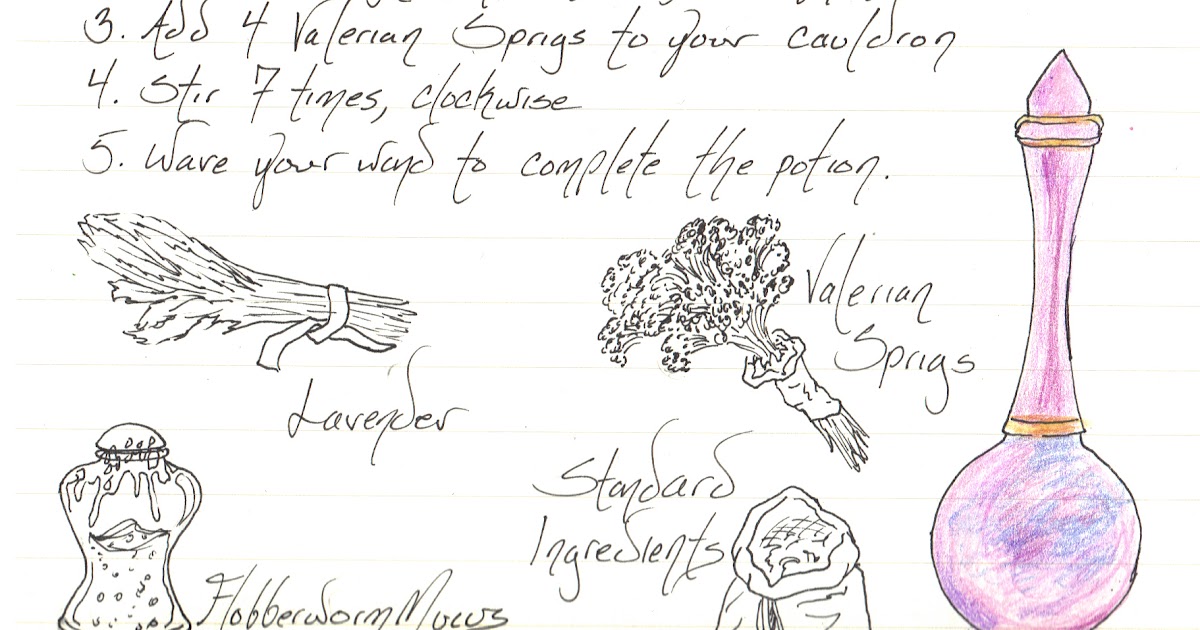 3. Add 4 Valerian Sprigs to your cauldron
4. Stir 7 times, clockwise
5. Wave your wand to complete the potion.
Valerian
Sprigs
Lavender
Standard
Ingredients
Flobberworm Mucus